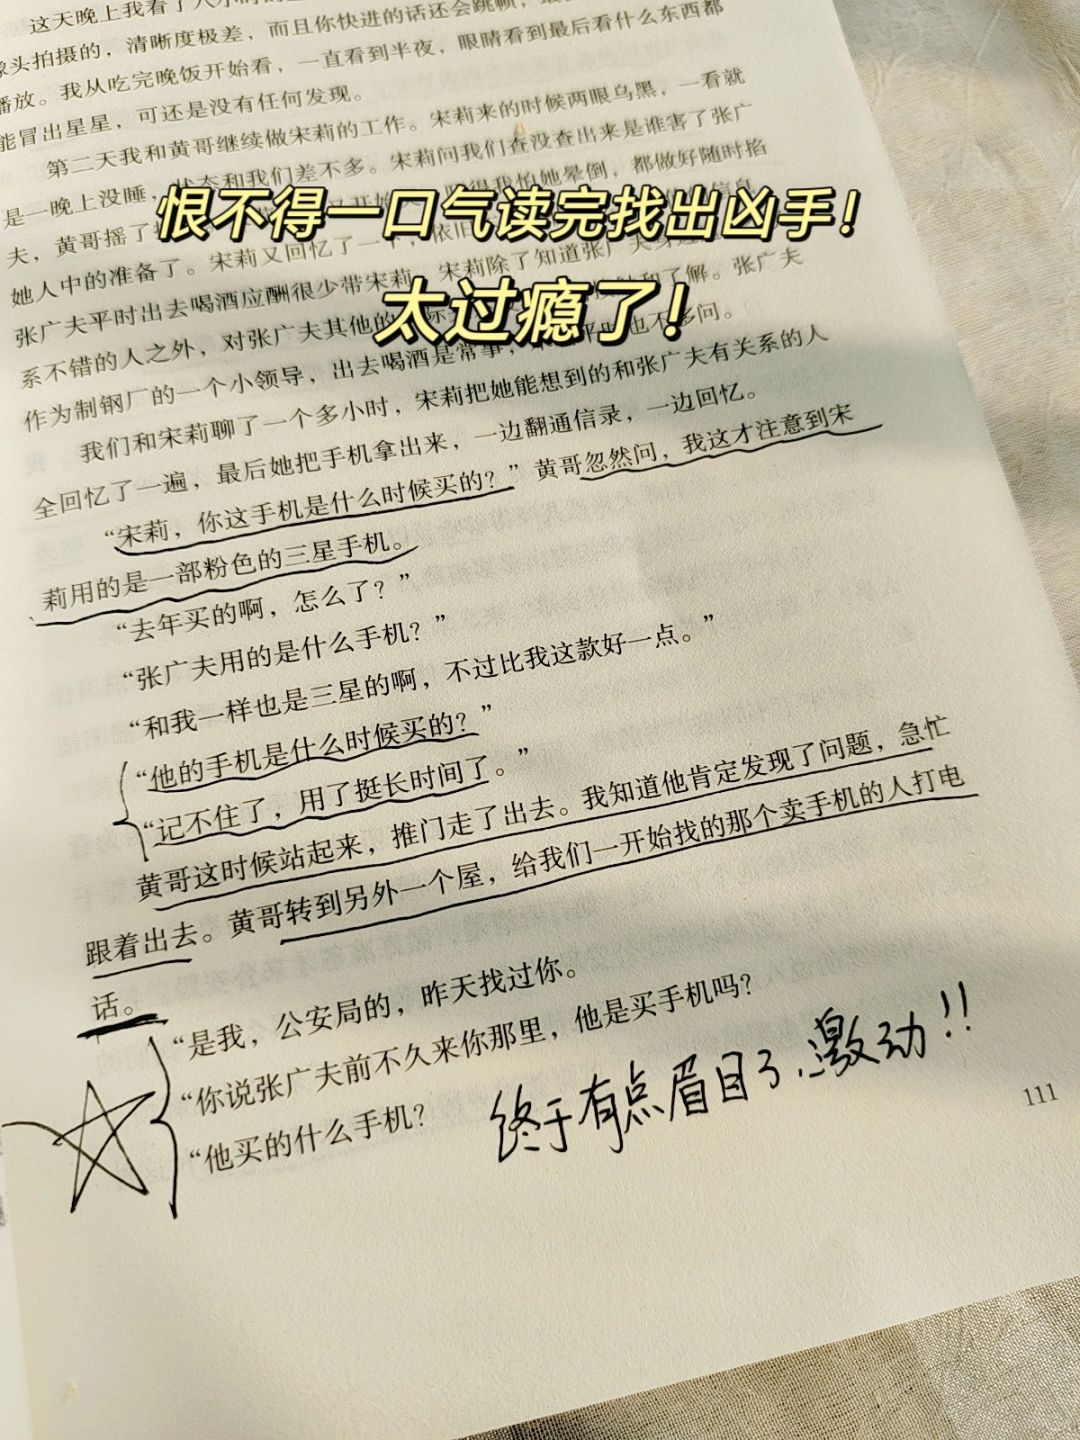 这天晚上我看了八小时的
像头拍摄的，清晰度极差，而且你快进的话还会跳帧，
播放。我从吃完晚饭开始看，一直看到半夜，眼睛看到最后看什么东西都
能冒出星星，可还是没有任何发现。
第二天我和黄哥继续做宋莉的工作。宋莉来的时候两眼乌黑，一看就
是一晚上没睡，状态和我们差不多。宋莉问我们查没查出来是谁害了张广
夫，黄哥摇了
怕她晕倒，都做好随时掐
恨不得一口气读完找出凶手！
她人中的准备了。宋莉又回忆了一下，依旧
信息
张广夫平时出去喝酒应酬很少带宋莉，宋莉除了知道张广夫
太过瘾了！
系不错的人之外，对张广夫其他的
和了解。张广夫
作为制钢厂的一个小领导，出去喝酒是常事，
也不多问。
我们和宋莉聊了一个多小时，宋莉把她能想到的和张广夫有关系的人
全回忆了一遍，最后她把手机拿出来，一边翻通信录，一边回忆。
“宋莉，你这手机是什么时候买的？”黄哥忽然问，我这才注意到宋
莉用的是一部粉色的三星手机。
“去年买的啊，怎么了？”
“张广夫用的是什么手机？”
“和我一样也是三星的啊，不过比我这款好一点。”
“他的手机是什么时候买的？”
“记不住了，用了挺长时间了。”
黄哥这时候站起来，推门走了出去。我知道他肯定发现了问题，急忙
跟着出去。黄哥转到另外一个屋，给我们一开始找的那个卖手机的人打电
话。
“是我，公安局的，昨天找过你。
“你说张广夫前不久来你那里，他是买手机吗？
“他买的什么手机？
终于有点眉目了，激动！！
111